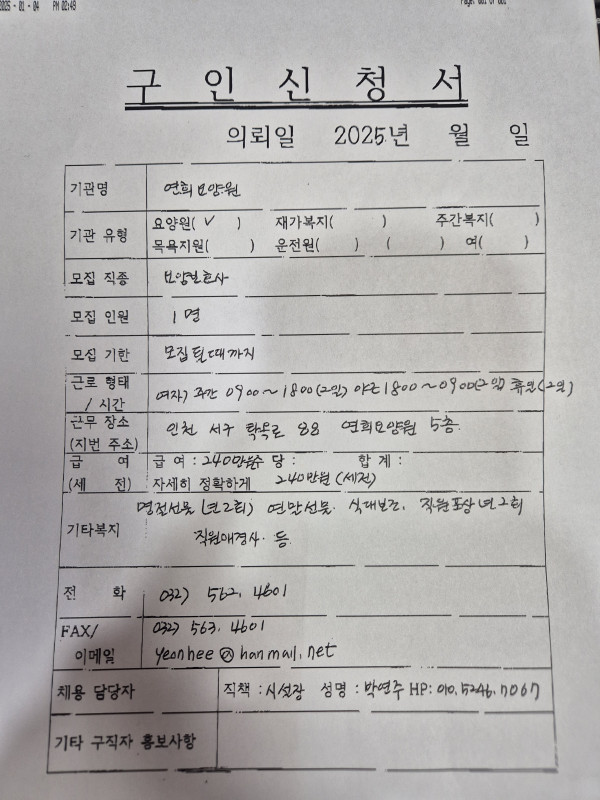 2025 - 01 - 04 PM 02:48
구 인 신 청 서
의뢰일 2025년 월 일
기관명 연희요양원
기관 유형 요양원( ✓ ) 재가복지( ) 주간복지( )
목욕지원( ) 운전원( ) ( ) 여( )
모집 직종 요양보호사
모집 인원 1명
모집 기한 모집 될때까지
근로 형태 / 시간 여자) 주간 0900~1800(2일) 야근 1800~0900(2일) 휴무(2일)
근무 장소 (지번 주소) 인천 서구 탁옥로 88 연희요양원 5층
급 여 급 여 : 240만원 수 당 : 합 계 :
(세 전) 자세히 정확하게 240만원 (세전)
기타복지 명절선물(년2회) 연말선물. 식대보건. 직원포상 년2회
직원애경사. 등
전 화 032) 562. 4601
FAX/ 032) 563. 4601
이메일 yeonhee@hanmail.net
채용 담당자 직책 : 시설장 성명 : 박연주 HP: 010.5246.7067
기타 구직자 홍보사항